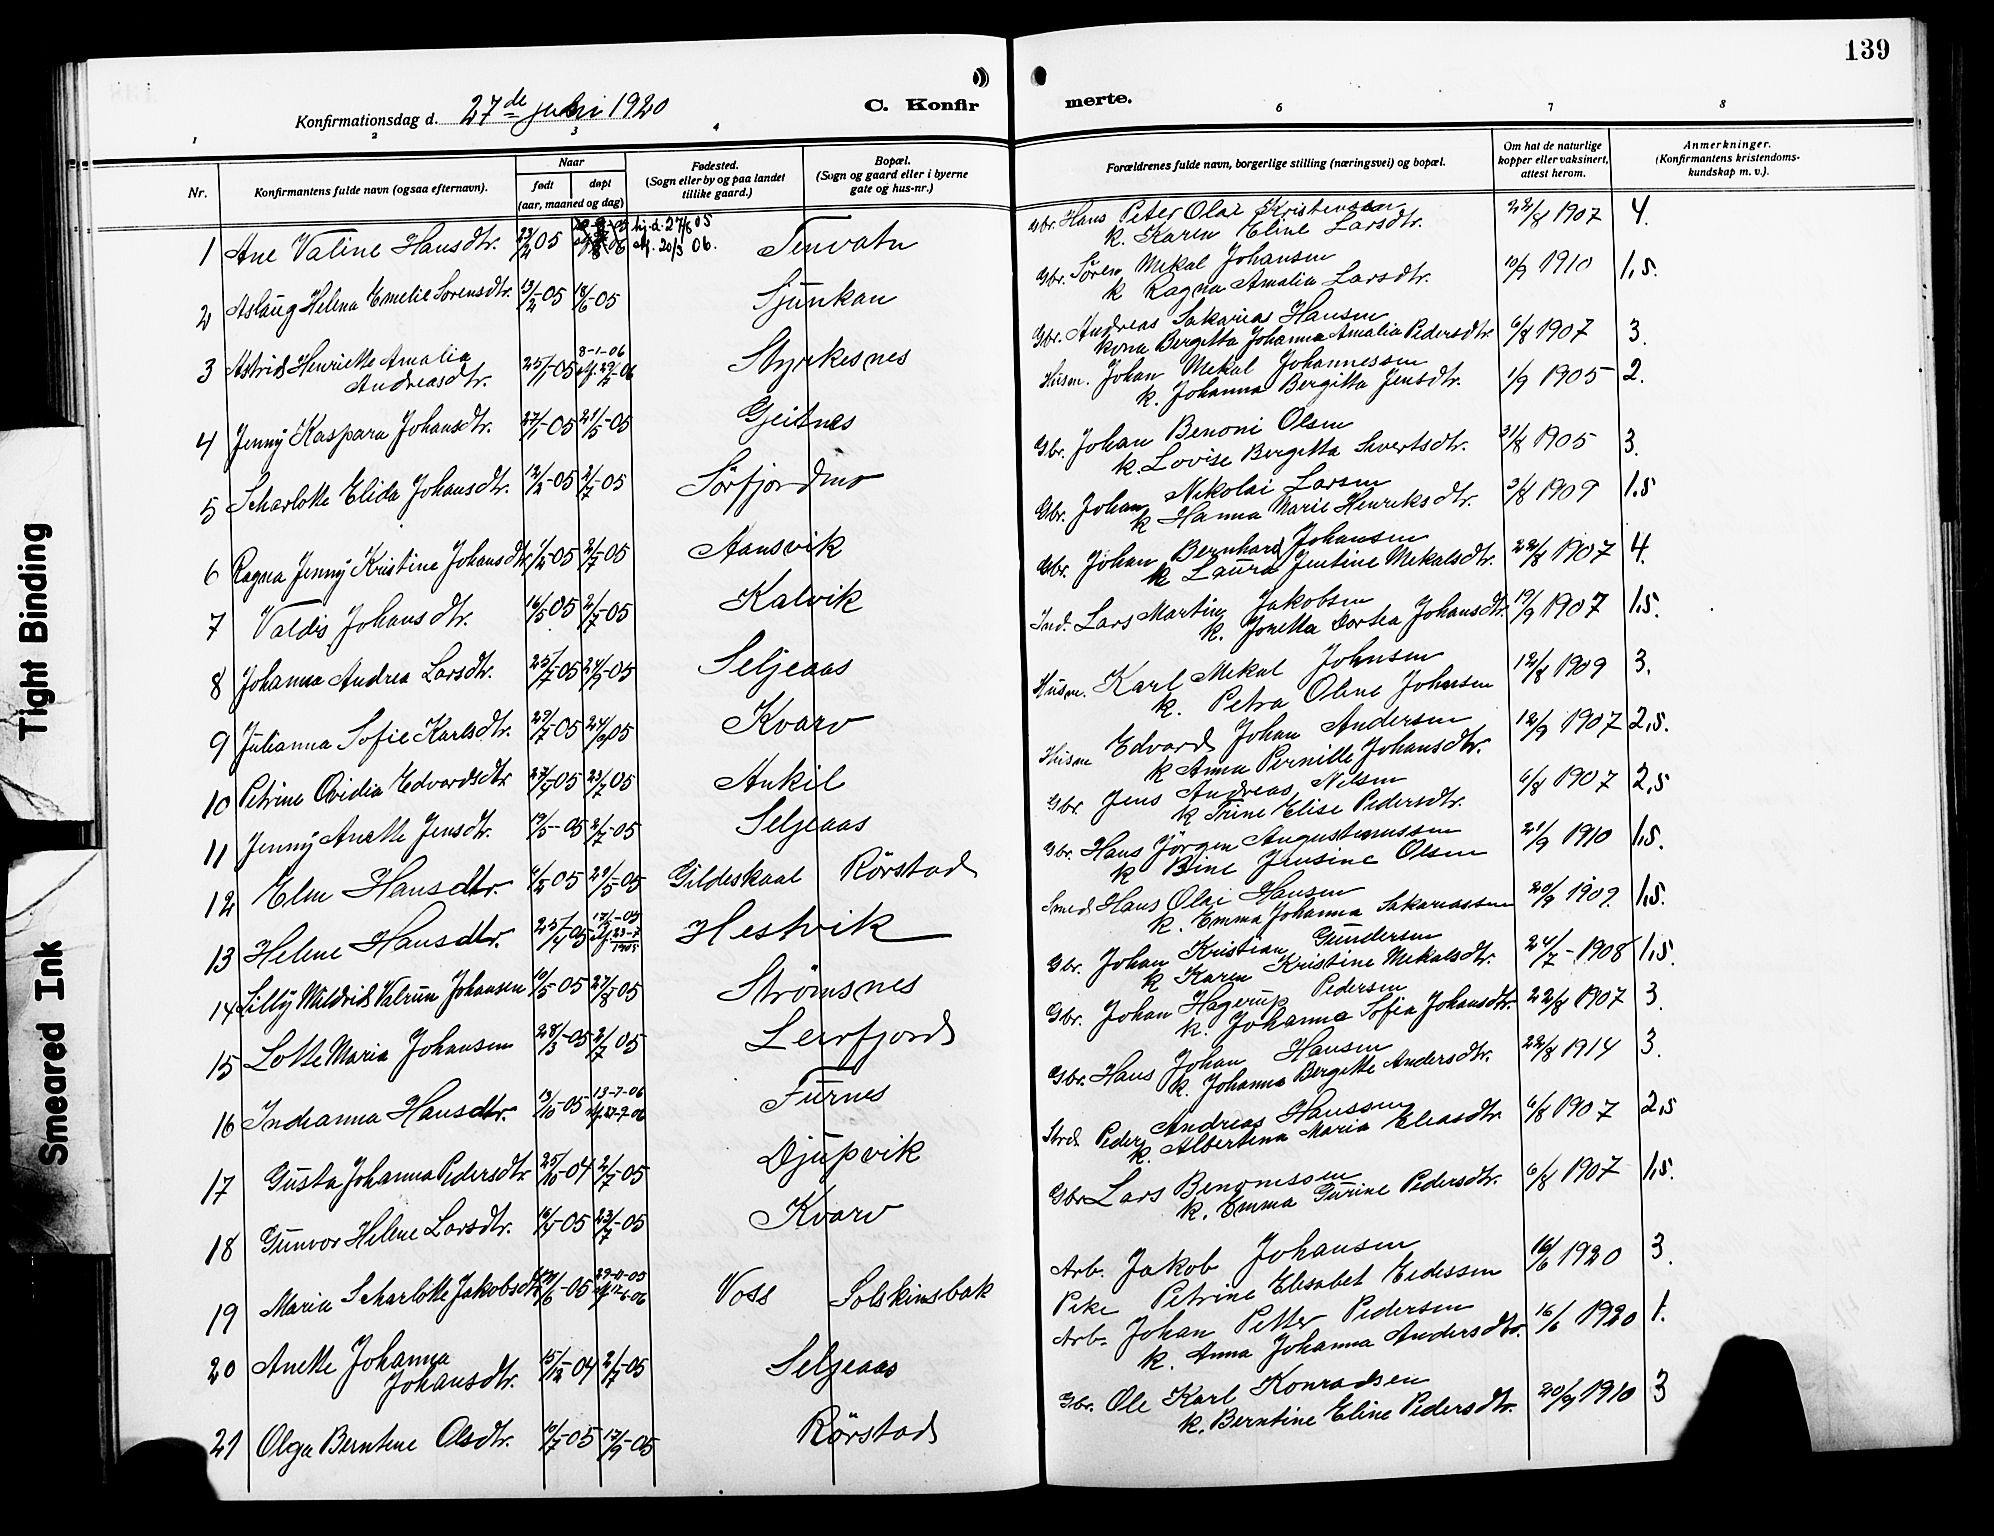 139
Konfirmationsdag d. 27de juni 1920
C. Konfirmerte.
1 2 3 4 6 7 8
Nr.
Konfirmantens fulde navn (ogsaa efternavn).
Naar
født døpt
(aar, maaned og dag)
Fødested.
(Sogn eller by og paa landet
tillike gaard.)
Bopæl.
(Sogn og gaard eller i byerne
gate og hus-nr.)
Forældrenes fulde navn, borgerlige stilling (næringsvei) og bopæl.
Om hat de naturlige
kopper eller vaksinert,
attest herom.
Anmerkninger.
(Konfirmantens kristendoms-
kundskap m. v.).
1 Ane Valine Hansdtr. 23/2 05 hj.d. 27/6 05 20/3 06. Tenvatn
Gbr. Hans Peter Olai Kristensen
k. Karen Eline Larsdtr. 22/8 1907 4.
2 Aslaug Helena Emelie Sørensdtr. 13/2-05 18/6-05 Sjunkan
Gbr. Søren Mekal Johansen
k Ragna Amalia Larsdtr. 10/9 1910 1,5.
3 Astrid Henriette Amalia
Andreasdtr. 25/1-05 8-1-06 Styrkesnes
Gbr. Andreas Sakarias Hansen
kona Bergitta Johanna Amalia Pedersdtr 6/8 1907 3.
4 Jenny Kaspara Johansdtr. 27/1-05 21/5-05 Geitnes
Husm. Johan Mekal Johannessen
k. Johanna Bergitta Jensdtr. 1/9 1905 2.
5 Scharlotte Elida Johansdtr. 12/2-05 2/7-05 Sørfjordmo
Gbr. Johan Benoni Olsen
k. Lovise Bergitta Sivertsdtr. 31/8 1905 3.
6 Ragna Jenny Kristine Johansdtr 1/2-05 2/7-05 Aansvik
Gbr. Johan Nikolai Larsen
k Hanna Marie Henriksdtr. 3/8 1909 1.5
7 Valdis Johansdtr. 16/5 05 2/7-05 Kalvik
Gbr. Johan Bernhard Johansen
k Laura Jentine Mekalsdtr. 22/8 1907 4.
8 Johanna Andrea Larsdtr. 25/7-05 24/9-05 Seljeaas
Ind. Lars Martin Jakobsen
k. Joretta Dortea Johansdtr. 19/9 1907 1.5.
9 Julianna Sofie Karlsdtr. 23/7-05 24/9 05 Kvarv
Husm. Karl Mekal Johnsen
k. Petra Oline Johnsen 12/8 1909 3.
10 Petrine Ovidia Edvardsdtr 27/4-05 23/7 05 Ankil
Husm Edvard Johan Andersen
k Anna Pernille Johansdtr. 12/9 1907 2,5.
11 Jenny Anette Jensdtr. 19/5-05 2/7-05 Seljeaas
Gbr. Jens Andreas Nilsen
k Trine Elise Pedersdtr. 6/8 1907 2,5
12 Elen Hansdtr. 6/2-05 21/5-05 Gildeskaal Rørstad
Gbr. Hans Jørgen Augustinussen
k Bine Jensine Olsen 21/9 1910 1,5.
13 Helene Hansdtr. 25/4-05 17/5-05 23-7 1905 Hestvik
Smed Hans Olai Hansen
k. Emma Johanna Sakariassen 20/9 1909. 1,5.
14 Lilly Mildrid Valrun Johansen 10/5-05 27/8-05 Strømsnes
Gbr. Johan Kristian Gundersen
k Karen Kristine Mekalsdtr. 24/7-1908 1,5.
15 Lotte Maria Johansen 28/3-05 2/7 05 Leirfjord
Gbr. Johan Hagerup Pedersen
k. Johanna Sofia Johansdtr. 22/8 1907 3.
16 Indianna Hansdtr. 13/10-05 13-7-06 Furnes
Gbr. Hans Johan Hansen
k. Johanna Bergitte Andersdtr. 22/8 1914 3.
17 Gusta Johanna Pedersdtr 25/10-04 2/7-05 Djupvik
Peder Andreas Hanssen
k. Albertina Maria Eliasdtr. 6/8 1907 2,5
18 Gunvor Helene Larsdtr. 16/4-05 23/7-05 Kvarv
Gbr Lars Benonissen
k. Emma Gurine Pedersdtr. 6/8 1907 1,5.
19 Maria Scharlotte Jakobsdtr -05 Voss Solskinsbak
Arb. Jakob Johansen
Pike Petrine Elisabet Eidissen 16/6 1920 3.
20 Anette Johanna
Johansdtr. 15/12-04 2/7-05 Seljeaas
Arb. Johan Petter Pedersen
k. Anna Johanna Andersdtr. 16/6 1920 1.
21 Olga Berntine Olsdtr. 10/7-05 17/9-05 Rørstad
Gbr. Ole Karl Konradsen
k. Berntine Eline Pedersdtr. 20/9 1910 3
Tight Binding
Smeared Ink